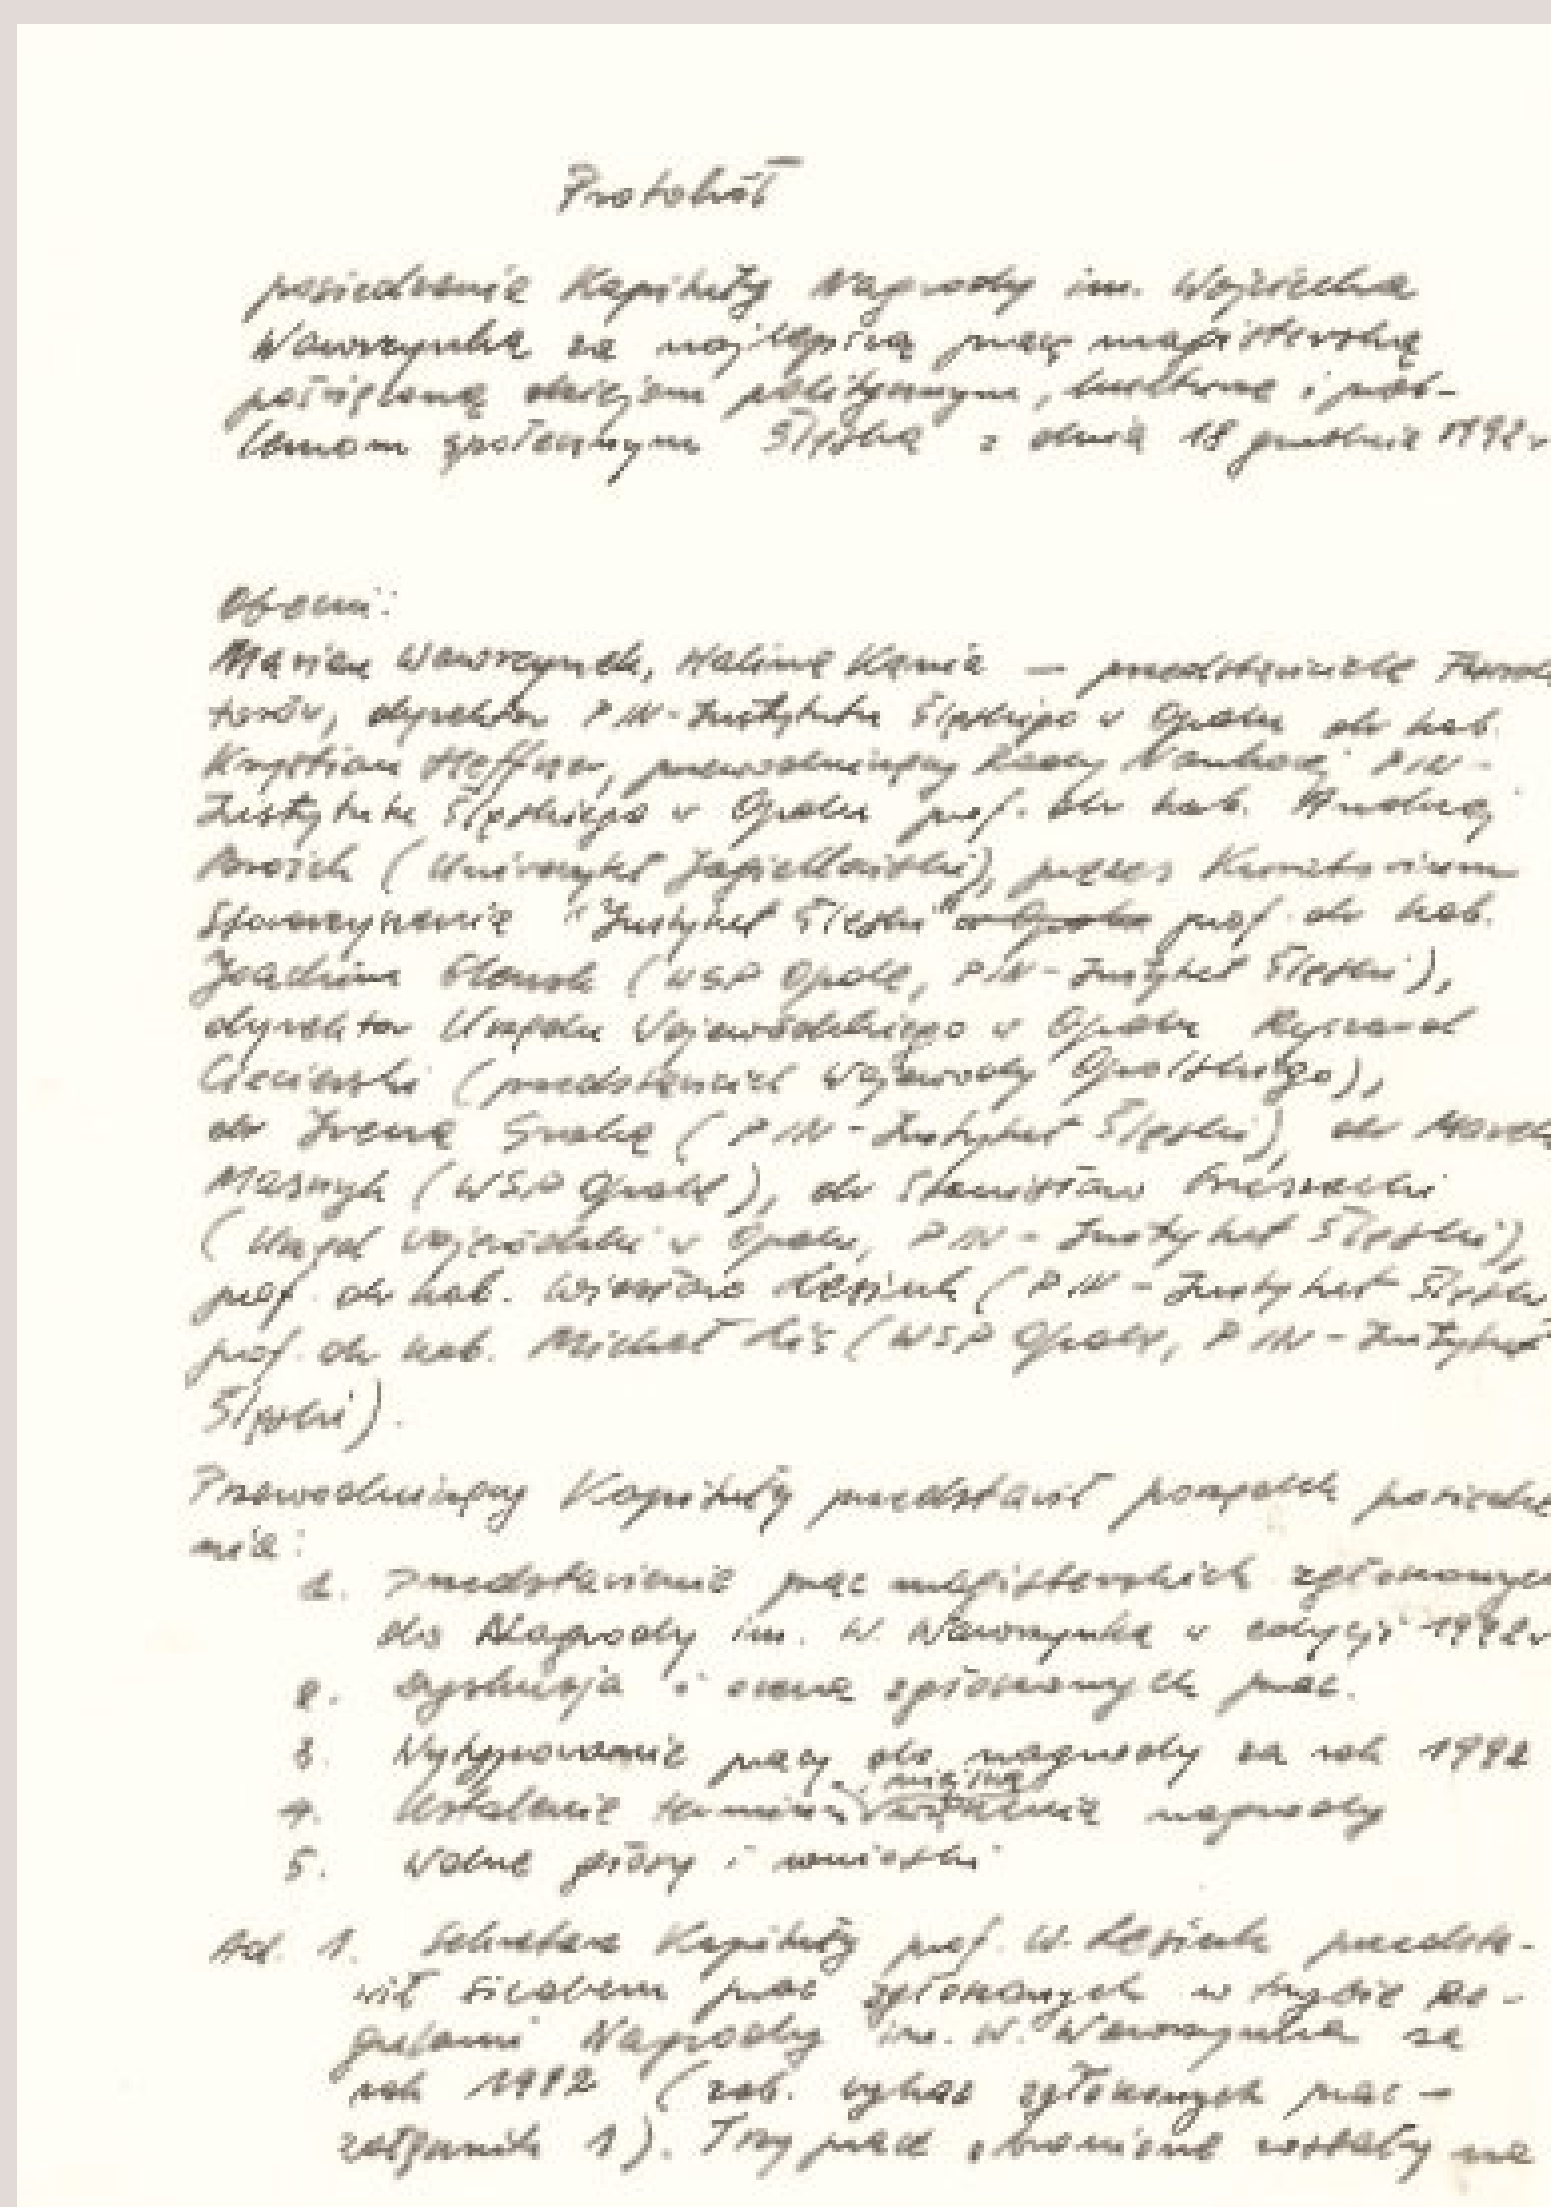 Protokół
posiedzenia Kapituły Nagrody im. Wojciecha
Wawrzynka za najlepszą pracę magisterską
poświęconą dziejom politycznym, kulturze i prob-
lemom społecznym Śląska z dnia 18 grudnia 1992r
Obecni:
Marian Wawrzynek, Halina Kania — przedstawiciele
torów, dyrektor PIN-Instytutu Śląskiego w Opolu dr hab.
Krystian Heffner, przewodniczący Rady Naukowej PIN-
Instytutu Śląskiego w Opolu prof. dr hab. Andrzej
Brożek (Uniwersytet Jagielloński), prezes Kuratorium
Stowarzyszenia "Instytut Śląski" w Opolu prof. dr hab.
Joachim Glensk (WSP Opole, PIN-Instytut Śląski),
dyrektor Urzędu Wojewódzkiego w Opolu Ryszard
(przedstawiciel Wojewody Opolskiego),
dr Irena (PIN-Instytut Śląski), dr Marek
Masnyk (WSP Opole), dr Stanisław
(Urząd Wojewódzki w Opolu, PIN-Instytut Śląski),
prof. dr hab. Wiesław Lesiuk (PIN-Instytut Śląski
prof. dr hab. Michał Lis (WSP Opole, PIN-Instytut
Śląski).
Przewodniczący Kapituły przedstawił porządek posiedze
nia:
1. Przedstawienie prac magisterskich zgłoszonych
do Nagrody im. W. Wawrzynka w edycji 1992r
2. Dyskusja i ocena zgłoszonych prac.
3. Wytypowanie pracy do nagrody za rok 1992
miejsca
4. Ustalenie terminu i wręczenia nagrody
5. Wolne głosy i wnioski
Ad. 1. Sekretarz Kapituły prof. W. Lesiuk przedsta-
wił siedem prac zgłoszonych w trybie re-
gulaminu Nagrody im. W. Wawrzynka za
rok 1992 (zob. wykaz zgłoszonych prac -
załącznik 1). Trzy prace obronione zostały na